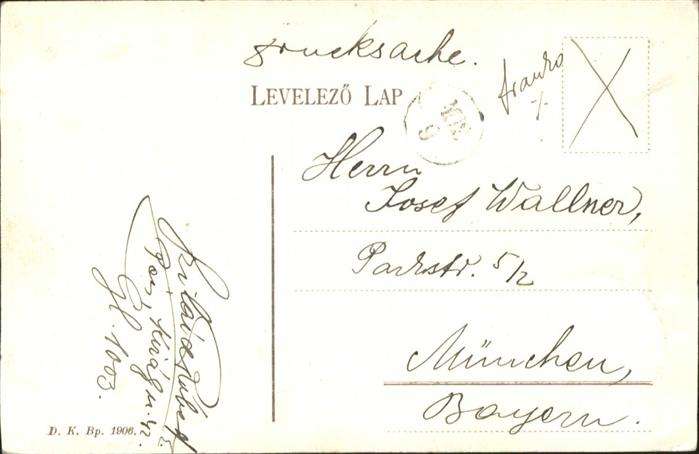 Drucksache.
LEVELEZŐ LAP
franko
Herrn
Josef Wallner,
Parkstr. 5/2
München,
Bayern.
Gl. 1003.
D. K. Bp. 1906.